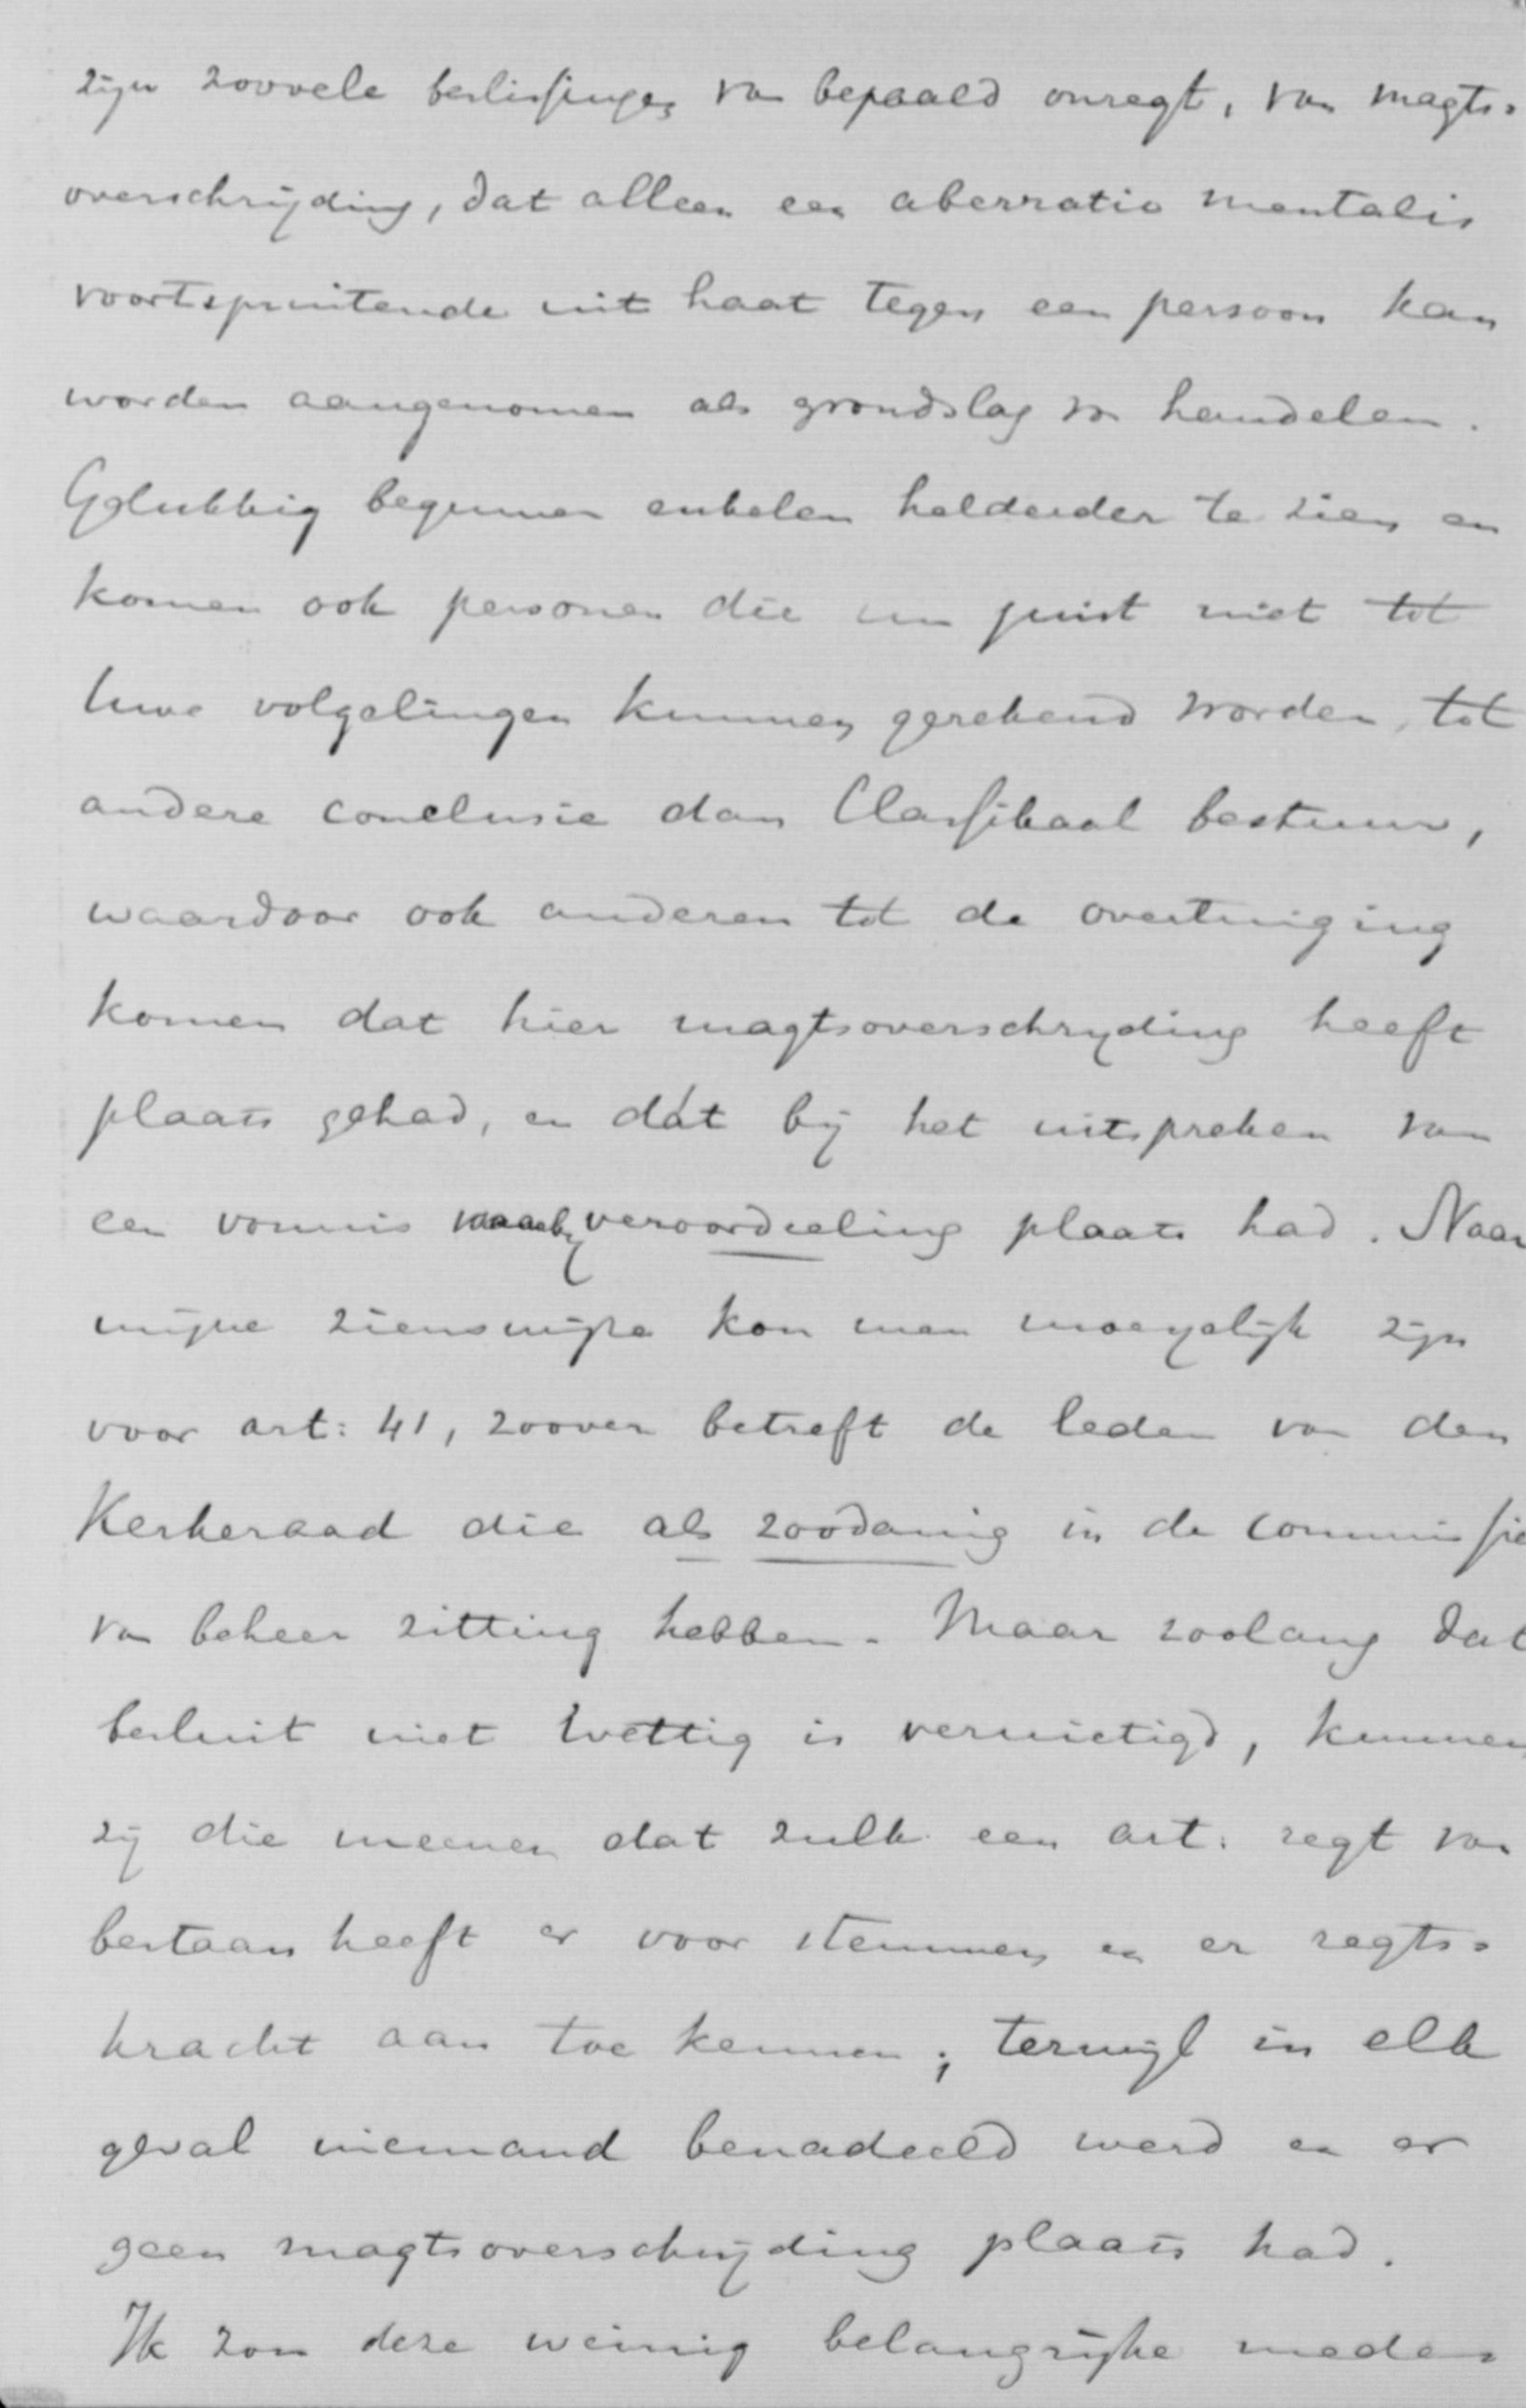 zijn zoovele beslissingen van bepaald onregt, van magts=
overschrijding, dat alleen een aberratio mentalis
voortspruitende uit haat tegen een persoon kan
worden aangenomen als grondslag van handelen.
Gelukkig beginnen enkelen helderder te zien en
komen ook personen die nu juist niet tot
Uwe volgelingen kunnen gerekend worden, tot
andere conclusie dan Classikaal bestuur,
waardoor ook anderen tot de overtuiging
komen dat hier magtsoverschryding heeft
plaats gehad, en dát bij het uitspreken van
een vonnis waarby veroordeeling plaats had. Naar
mijne zienswijze kon men moeyelijk zijn
voor art: 41, zoover betreft de leden van den
Kerkeraad die als zoodanig in de commissie
van beheer zitting hebben. Maar zoolang dat
besluit niet wettig is vernietigd, kunnen
zij die meenen dat zulk een art: regt van
bestaan heeft er voor stemmen en er regts=
kracht aan toe kennen; terwijl in elk
geval niemand benadeeld werd en er
geen magtsoverschrijding plaats had.
Ik zou deze weinig belangrijke mede=